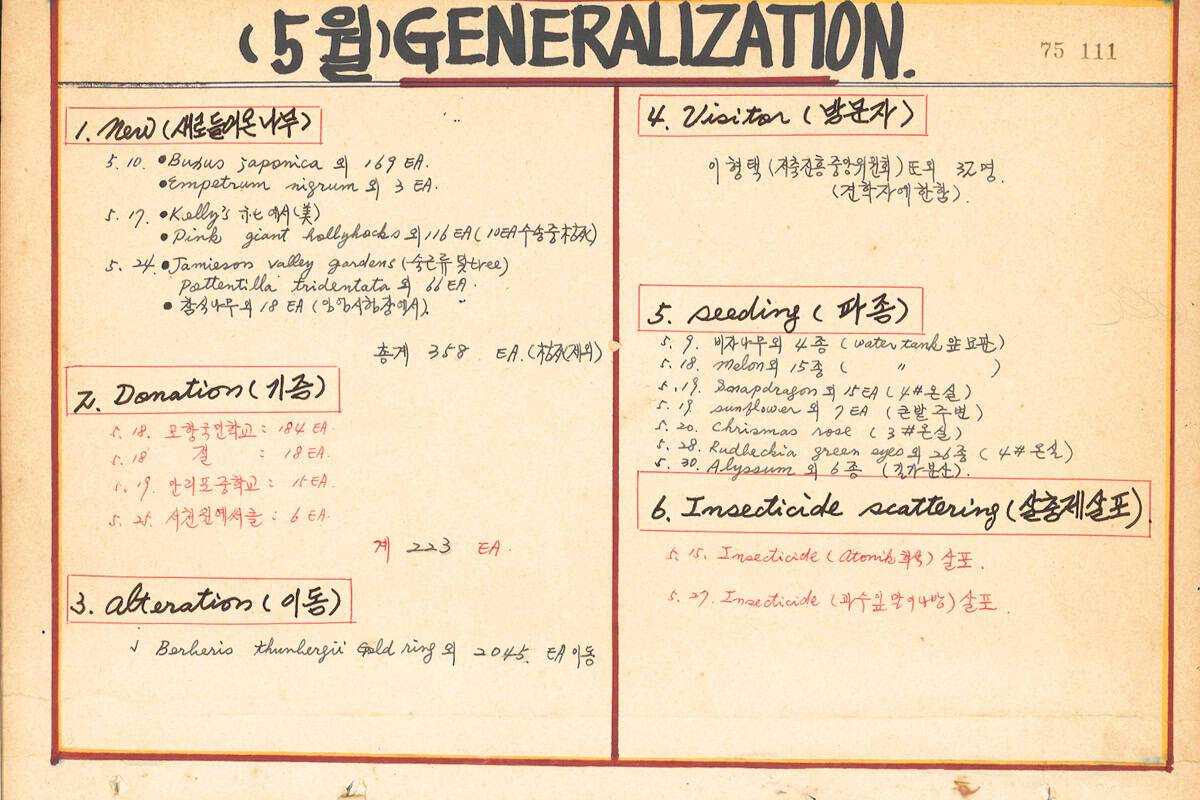 (5월) GENERALIZATION.
75 111
1. New (새로들어온나무)
5. 10. • Buxus japonica 외 169 EA.
• Empetrum nigrum 외 3 EA.
5. 17. • Kelly's 社에서(美)
• Pink giant hollyhocks 외 116 EA (10EA수송중枯死)
5. 24. • Jamieson valley gardens (숙근류 및 tree)
Pottentilla tridentata 외 66 EA.
• 참식나무외 18 EA
총계 358 EA. (枯死제외)
2. Donation (기증)
5. 18. 모항국민학교 : 184 EA.
5. 18 절 : 18 EA.
5. 19. 만리포중학교 : 15 EA.
5. 25. 서천원예서클 : 6 EA.
계 223 EA.
3. alteration (이동)
√ Berberis thunbergii Gold ring 외 2045. EA 이동
4. Visitor (방문자)
이형택 (저축진흥중앙위원회) 氏외 32명.
(견학자에한함).
5. seeding (파종)
5. 9. 비자나무외 4종 (water tank 앞묘판)
5. 18. Melon외 15종 ( 〃 )
5. 19. Snapdragon 외 15 EA (4#온실)
5. 19. sunflower 외 7 EA (큰밭주변)
5. 20. Chrismas rose (3#온실)
5. 28. Rudbeckia green eyes외 26종 (4#온실)
5. 30. Alyssum 외 6종
6. Insecticide scattering (살충제살포).
5. 15. Insecticide (Atonik) 살포.
5. 27. Insecticide 살포.